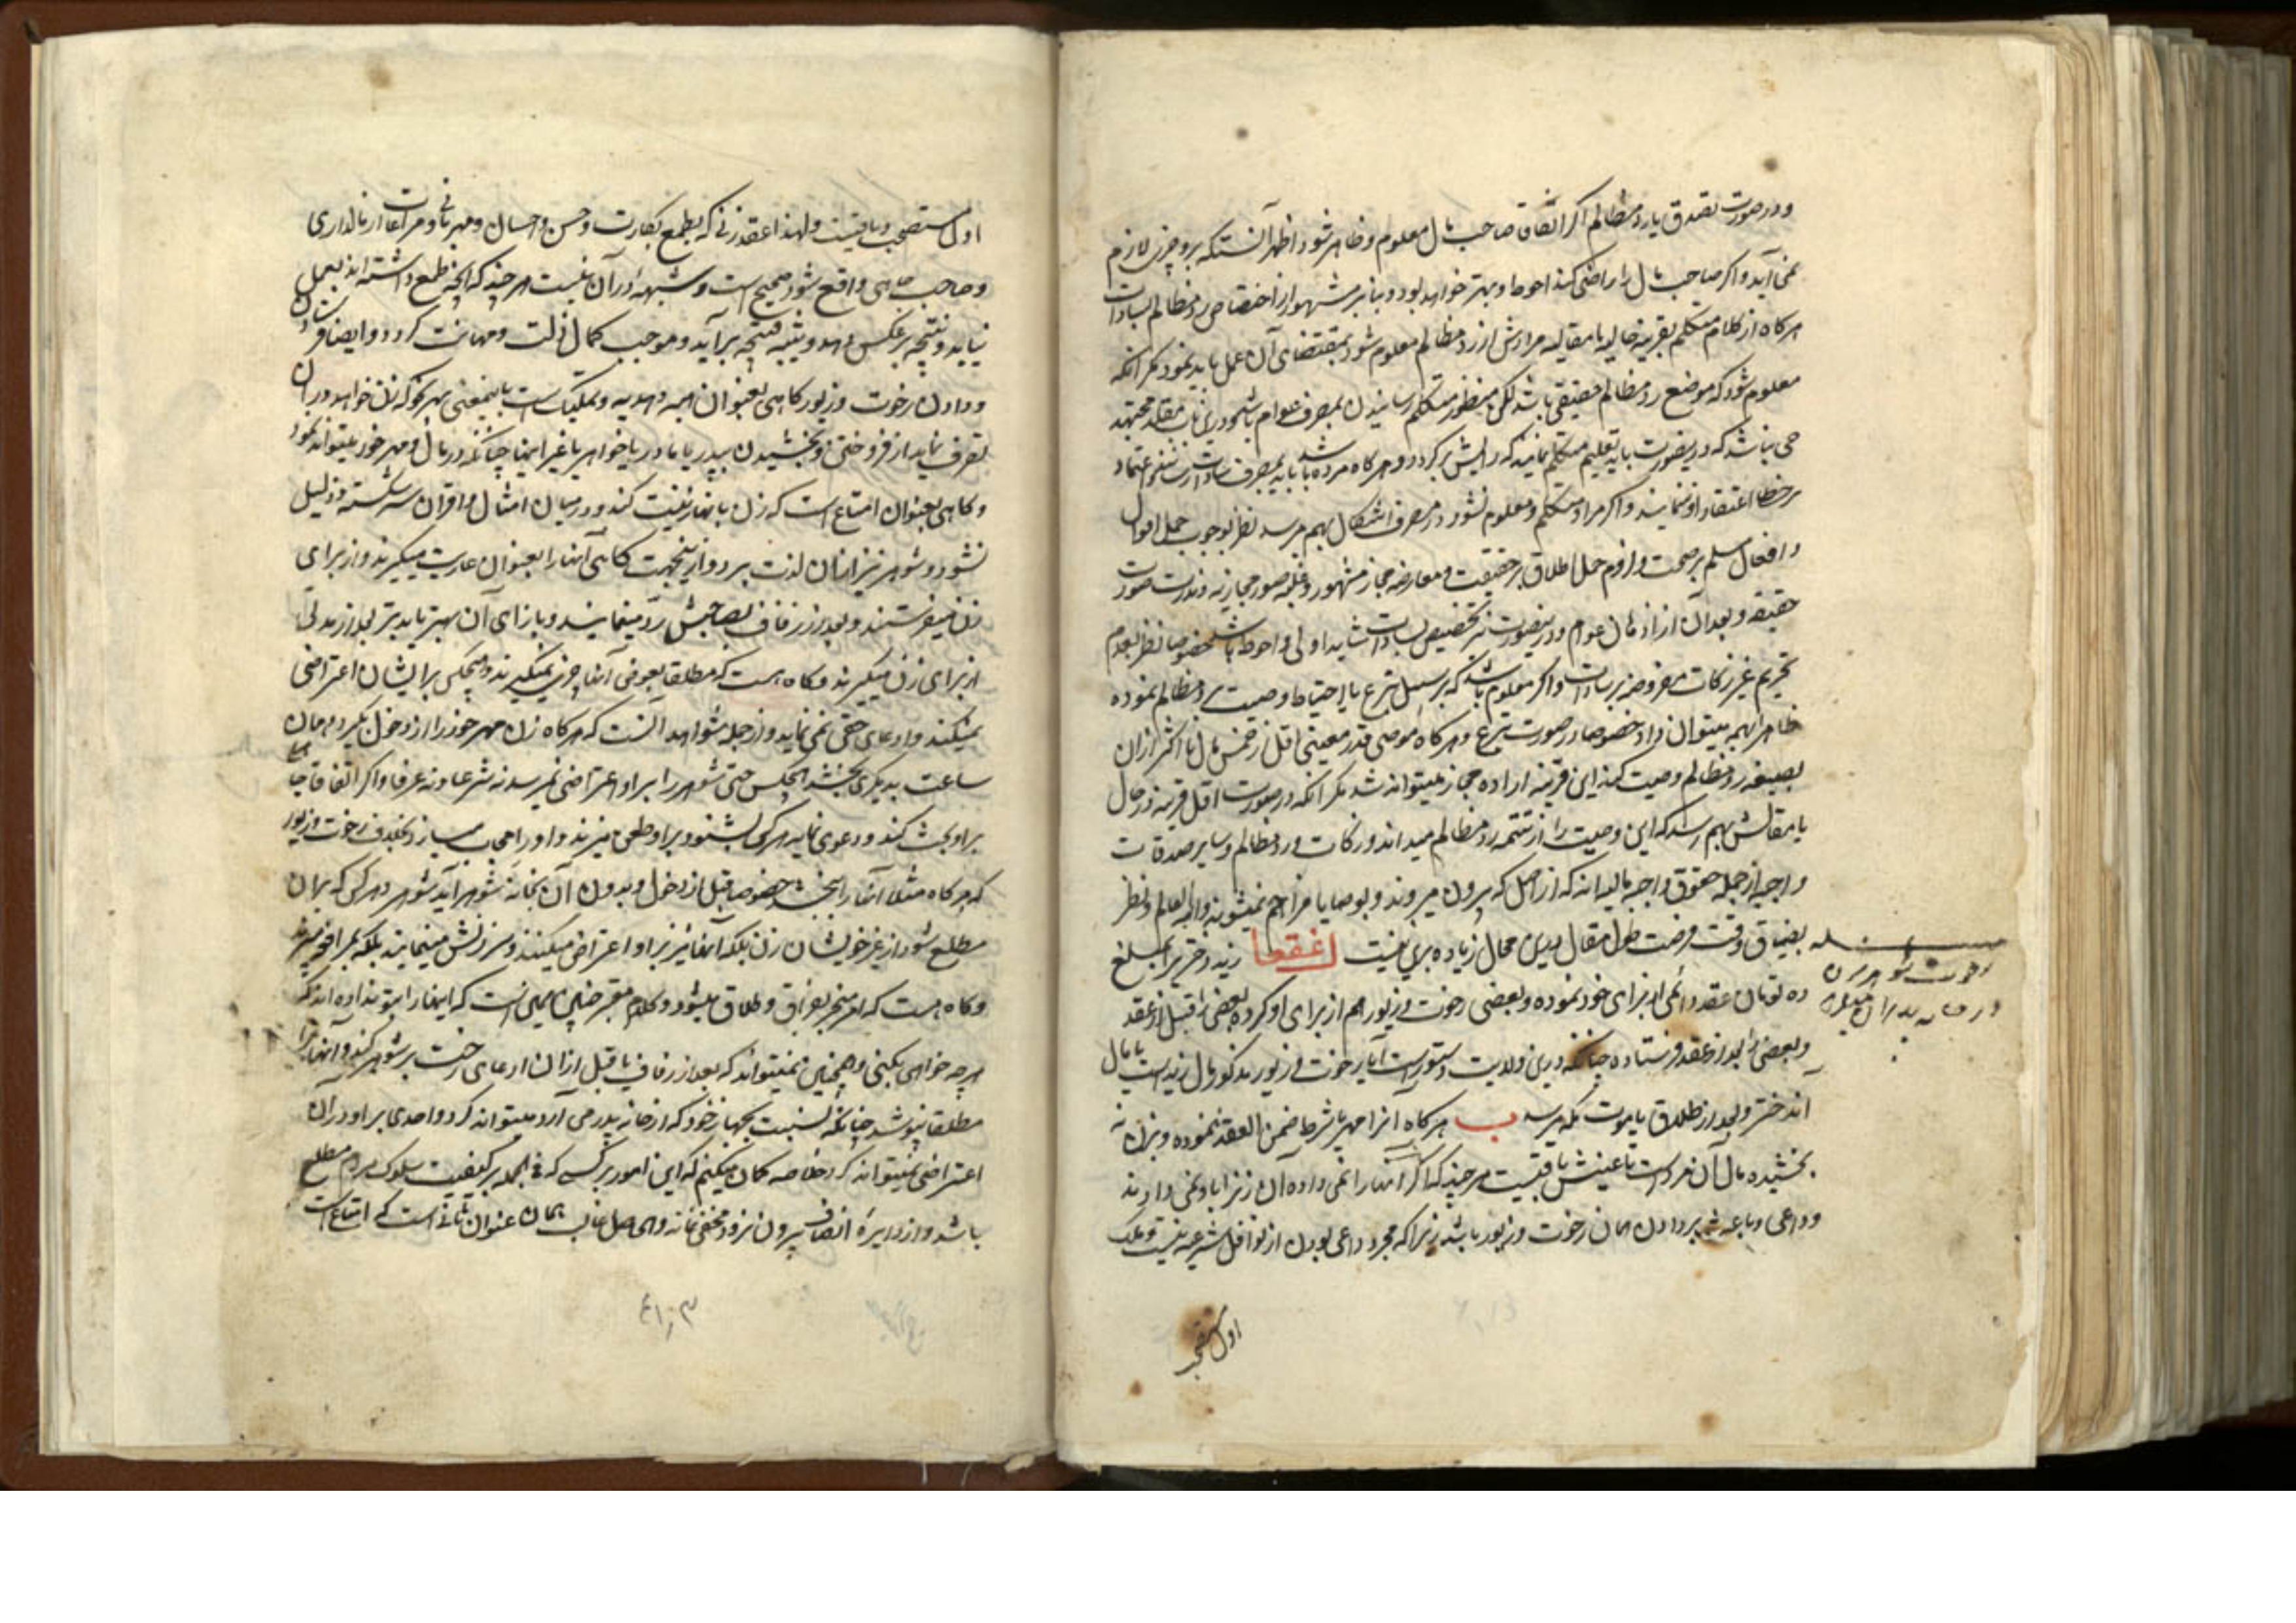 ودر صورت تصدق یا رد مظالم اگر اتفاقا صاحب مال معلوم وظاهر شود اظهر آنستکه بر وچیزی لازم
نمی آید واگر صاحب مال را راضی کند احوط وبهتر خواهد بود وبنابر مشهور از اختصاص رد مظالم بسادات
هرکاه از کلام متکلم بقرینه حالیه یا مقالیه مرادش از رد مظالم معلوم شود بمقتضای آن عمل باید نمود مگر آنکه
معلوم شود که موضع رد مظالم حقیقی باشد لکن منظور متکلم رسانیدن بمصرف عوام باشد ودرین باب مقلد مجتهد
حی نباشد که درینصورت باید تعلیم متکلم نمایند که رایش برکردد وهرکاه مرده باشد باید بمصرف سادات
بر خطا اعتقاد او ننمایند واگر مراد متکلم معلوم نشود در مصرف اشکال بهم میرسد نظر بوجوب حمل اقوال
وافعال مسلم بر صحت ولزوم حمل اطلاق بر حقیقت ومعارضه مجاز مشهور وغلبه صور مجازیه وندرت صورت
حقیقه وبعد آن از اذهان عوام ودرینصورت نیز تخصیص بسادات شاید اولی واحوط باشد خصوصا نظر بعدم
تحریم غیر زکات مفروضه بر سادات واگر معلوم باشد که بر سبیل تبرع یا احتیاط وصیت برد مظالم نموده
ظاهرا بهمه میتوان داد خصوصا در صورت تبرع وهرکاه موصی قدر معینی اقل از خمس مال یا اکثر از آن
بصیغه رد مظالم وصیت کند این قرینه اراده مجاز نمیتواند شد مگر آنکه در صورت اقل قرینه در حال
یا مقالش بهم رسد که این وصیت را از تتمه رد مظالم میداند وزکات ورد مظالم وسایر صدقات
واجبه از جمله حقوق واجبه مالیه اند که از اصل که بیرون میروند وبوصایا مزاحم نمیشوند والله العالم ونظر
بضیاق وقت فرصت طول مقال درین محال زیاده برین نیست زید دختریرا بمبلغ
ده تومان عقد دائمی از برای خود نموده وبعضی رخوت وزیور هم از برای او کرده بعضی را قبل از عقد
وبعضی را بعد از عقد فرستاده چنانکه درین ولایت دستور است آیا رخوت وزیور مذکور مال زید است یا مال
آن دختر وبعد از طلاق یا موت بکه میرسد ب هرکاه آنرا مهر یا شرط ضمن العقد ننموده وبزن نه
بخشیده مال آن مرد است تا عینش باقیست هرچند که اگر آنها را نمی داد آن زن را باو نمی دادند
وداعی وباعث بر دادن همان رخوت وزیور باشد زیرا که مجرد داعی بودن از نواقل شرعیه نیست وملک
رخوت شوهر بزن
در خانه پدر ان میبرد
اول مستصحب
اول مستصحب وباقیست ولهذا عقد زنی که بطمع بکارت وحسن واحسان ومهربانی ومراعات از مالداری
وصاحب جاهی واقع شود صحیح است وشبههٔ در آن نیست هرچند که آنچه طمع داشته اند بعمل
نیاید ونتیجه بر عکس دهد وموجب کمال ذلت ومهانت کردد وایضا فرستادن
ودادن رخوت وزیور کاهی بعنوان هبه وهدیه وتملیک است باینمعنی بهر نحو که زن خواهد در آن
تصرف نماید از فروختن وبخشیدن بپدر یا مادر یا خواهر یا غیر اینها چنانکه در مال ومهر خود میتواند نمود
وکاهی بعنوان امتاع است که زن بآنها زینت کند ودر میان امثال واقران سرشکسته وذلیل
نشود وشوهر نیز از آن لذت برد وازینجهت کاهی آنها را بعنوان عاریت میکیرند واز برای
زن میفرستند وبعد از زفاف بصاحبش رد مینمایند وبازای آن بهتر یا بدتر بعد از مدتی
از برای زن میکیرند وکاه هست که مطلقا بعوض آنها چیزی نمیکیرند وهیچکس بر ایشان اعتراضی
نمیکند وادعای حقی نمی نماید واز جمله شواهد آنست که هرکاه زن مهر خود را از دخول بکیرد وهمان
ساعت بدیگری بخشد هیچکس حتی شوهر را بر او اعتراضی نمیرسد نه شرعا ونه عرفا واکر اتفاقا
بر او بحث کند ودعوی نماید هرکس بشنود بر او طعن میزند بخلاف رخوت وزیور
که هرکاه مثلا آنها را ببخشد خصوصا قبل از دخول وبدون آن بخانه شوهر آید شوهر وهر کس که بر آن
مطلع شود از غیر خویشان زن بلکه آنها نیز بر او اعتراض میکنند وسرزنش مینمایند
وکاه هست که امر منجر بفراق وطلاق میشود وکلام معترضین همین است که اینها را بتو نداده اند که
هرچه خواهی بکنی وهمچنین نمیتواند که بعد از زفاف یا قبل از آن ادعای رخت بر شوهر کند وآنها را
مطلقا نپوشد چنانکه نسبت بجهاز خود که از خانه پدر می آرد میتواند کرد واحدی بر او در آن
اعتراضی نمیتواند کرد خلاصه کمان میکنم که این امور بر کسی که فی الجمله بر کیفیت سلوک مردم مطلع
باشد واز دایره انصاف بیرون نرود مخفی نماند غالب همان عنوان ثانی است که امتاع است